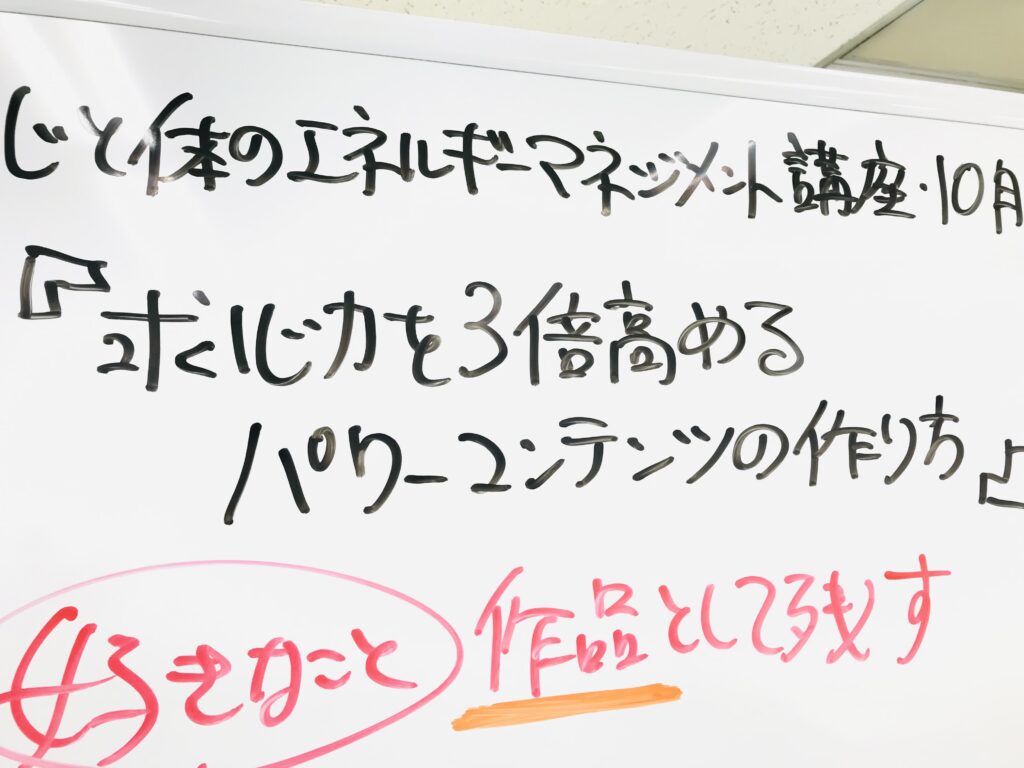 心と体のエネルギーマネッジメント講座・10月
『求心力を3倍高める
パワーコンテンツの作り方』
好きなこと 作品として残す